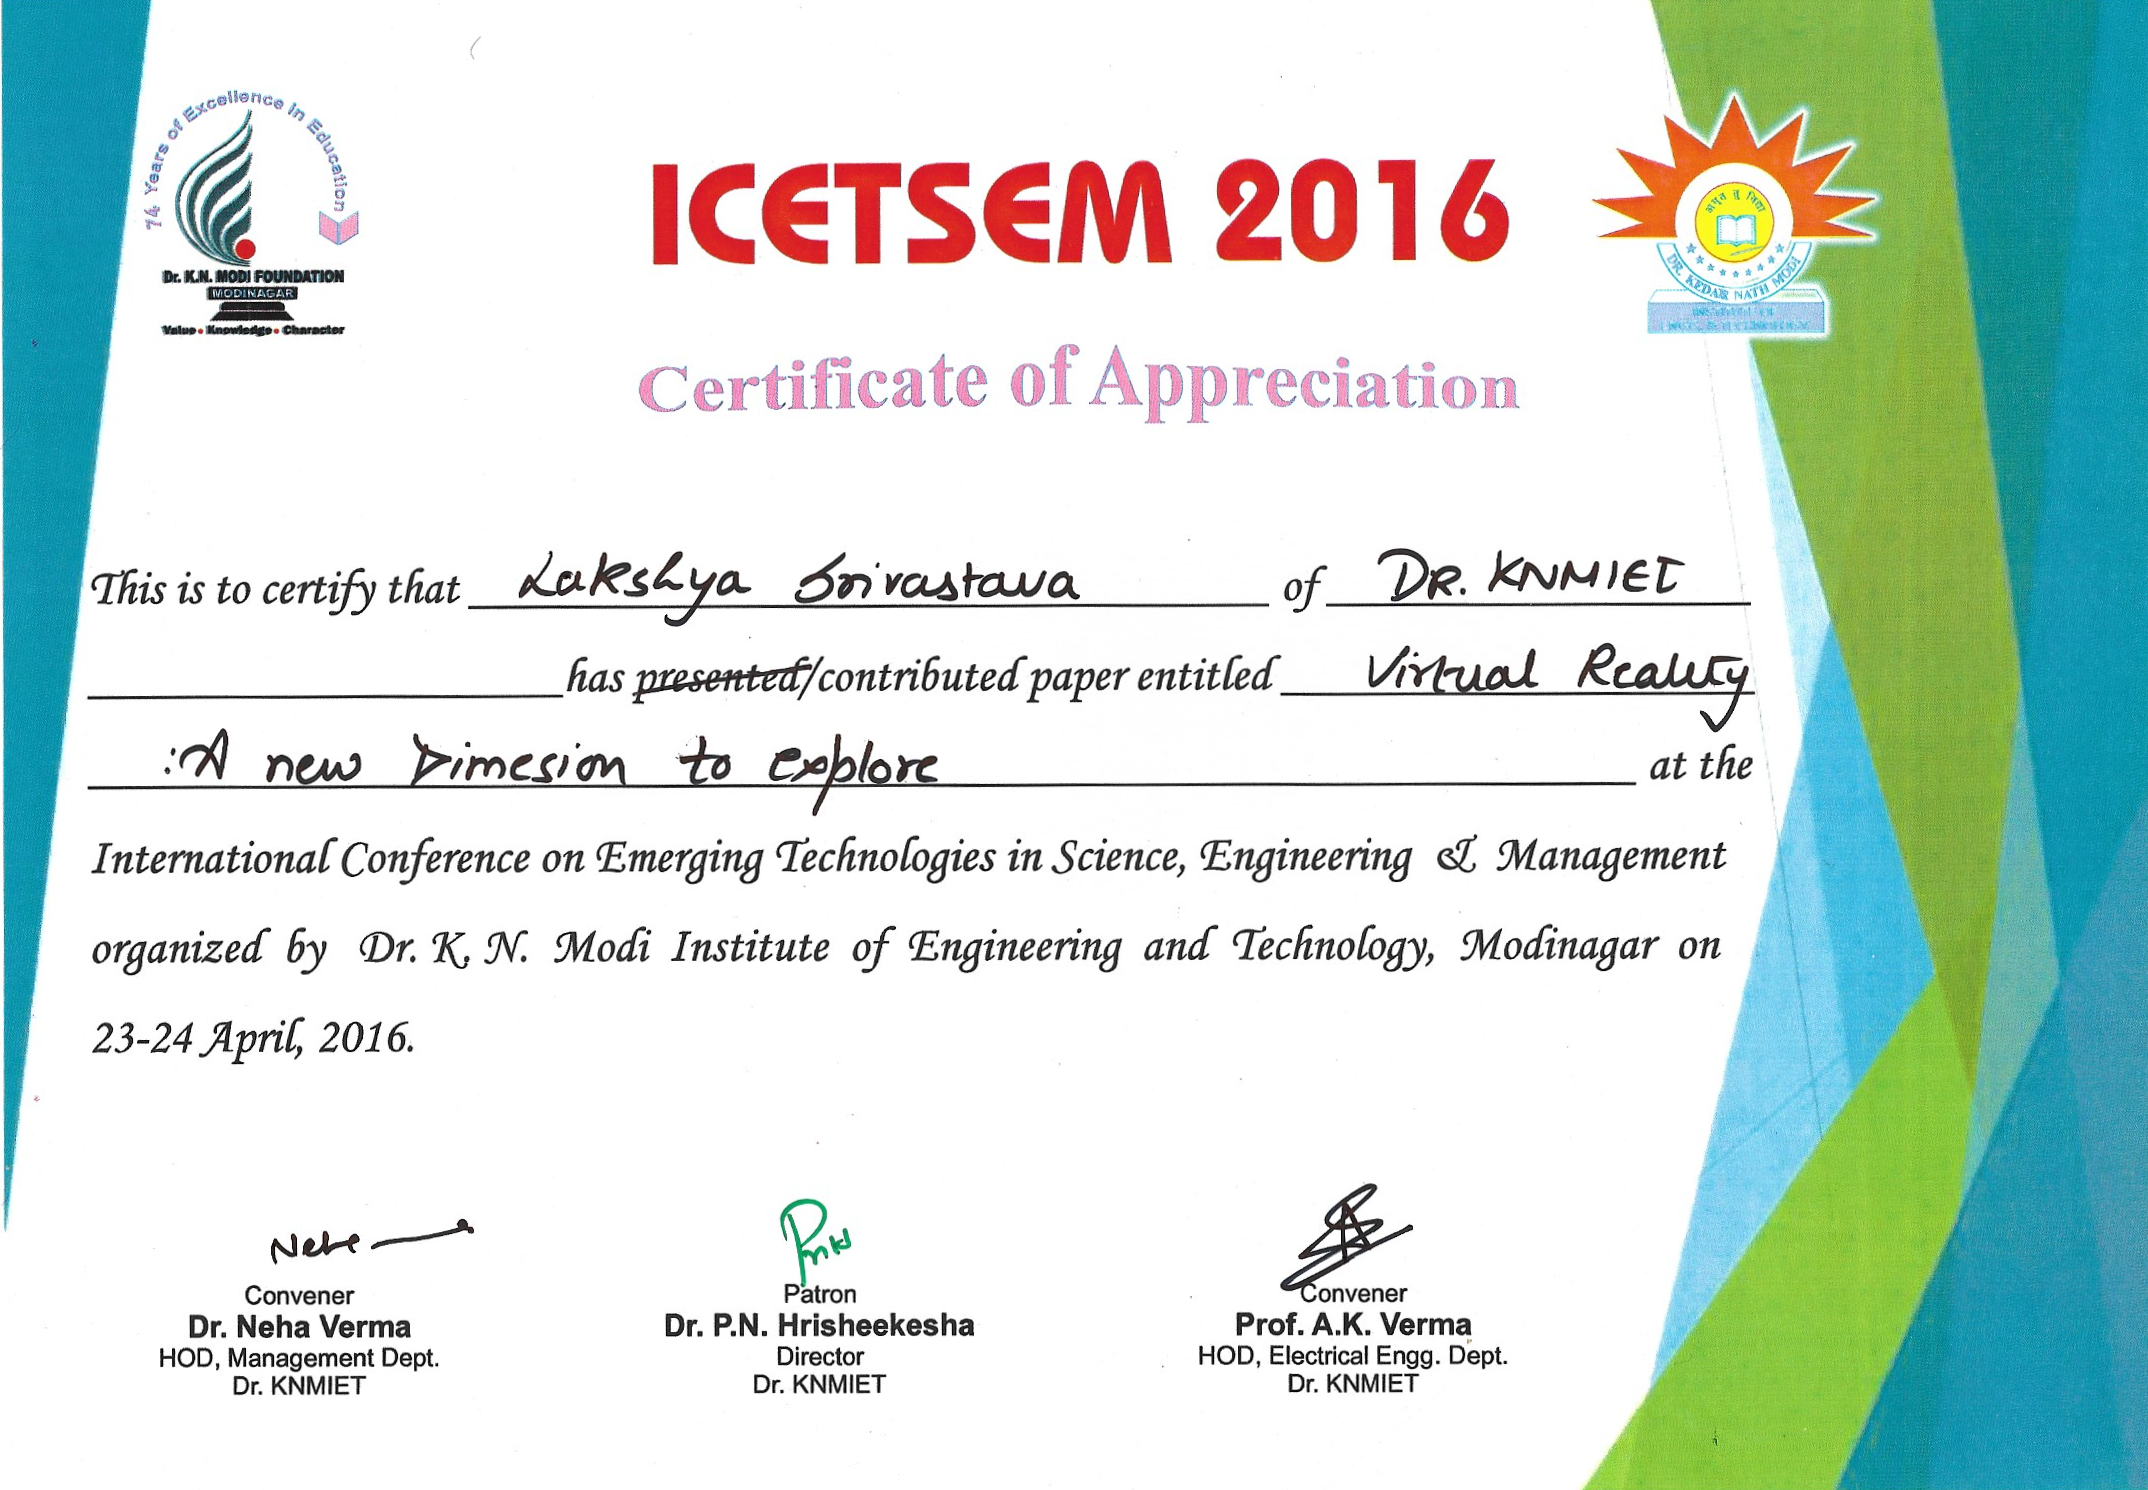 74 Years of Excellence in Education
Dr. K.N. MODI FOUNDATION
MODINAGAR
Value • Knowledge • Character
ICETSEM 2016
DR. KEDAR NATH MODI
INSTITUTE OF
Certificate of Appreciation
This is to certify that Lakshya Srivastava of DR. KNMIET
has presented/contributed paper entitled Virtual Reality
:A new Dimesion to explore at the
International Conference on Emerging Technologies in Science, Engineering & Management
organized by Dr. K. N. Modi Institute of Engineering and Technology, Modinagar on
23-24 April, 2016.
Convener
Dr. Neha Verma
HOD, Management Dept.
Dr. KNMIET
Patron
Dr. P.N. Hrisheekesha
Director
Dr. KNMIET
Convener
Prof. A.K. Verma
HOD, Electrical Engg. Dept.
Dr. KNMIET